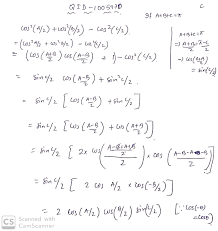 QID-1005970
If A+B+C=π
cos²(A/2) + cos²(B/2) - cos²(C/2)
= (cos²A/2 + cos²B/2) - cos²(C/2)
= cos(A+B/2) cos(A-B/2) + 1 - cos²(C/2)
= sin C/2 cos(A-B/2) + sin² C/2
= sin C/2 [cos(A-B/2) + sin C/2]
= sin C/2 [cos(A-B/2) + cos(A+B/2)]
= sin C/2 [2 cos A/2 × cos(-B/2)]
= 2 cos(A/2) cos(B/2) sin(C/2) [∵ cos(-θ) = cosθ]
CS Scanned with
CamScanner